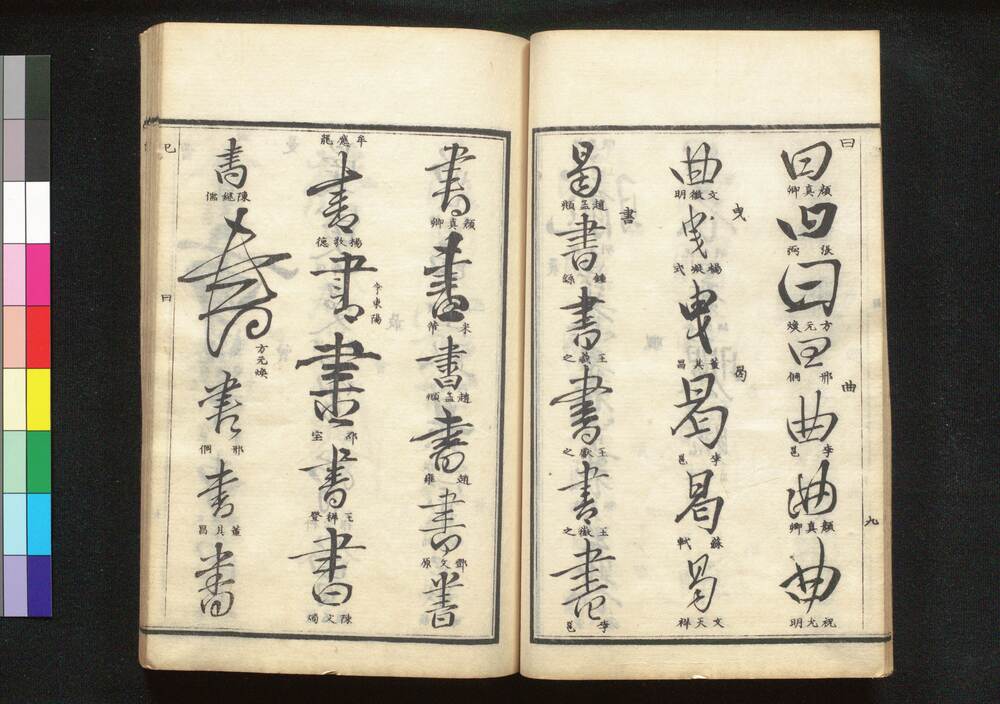 曰
曰
顔真卿
曰
張
曰
方元煥
曰
邢侗
曲
曲
李邕
曲
顔真卿
曲
祝允明
九
曲
文徴明
曳
曳
楊凝式
曳
董其昌
曷
曷
李邕
曷
蘇軾
曷
文天祥
曷
趙孟頫
書
書
鍾繇
書
王羲之
書
王獻之
書
王徽之
書
李邕
書
顔真卿
書
米芾
書
趙孟頫
書
趙雍
書
鄧文原
書
牟應龍
書
楊敬德
書
今東陽
書
書
王穉登
書
陳文燭
書
陳繼儒
書
方元煥
書
邢侗
書
董其昌
書
巳
曰